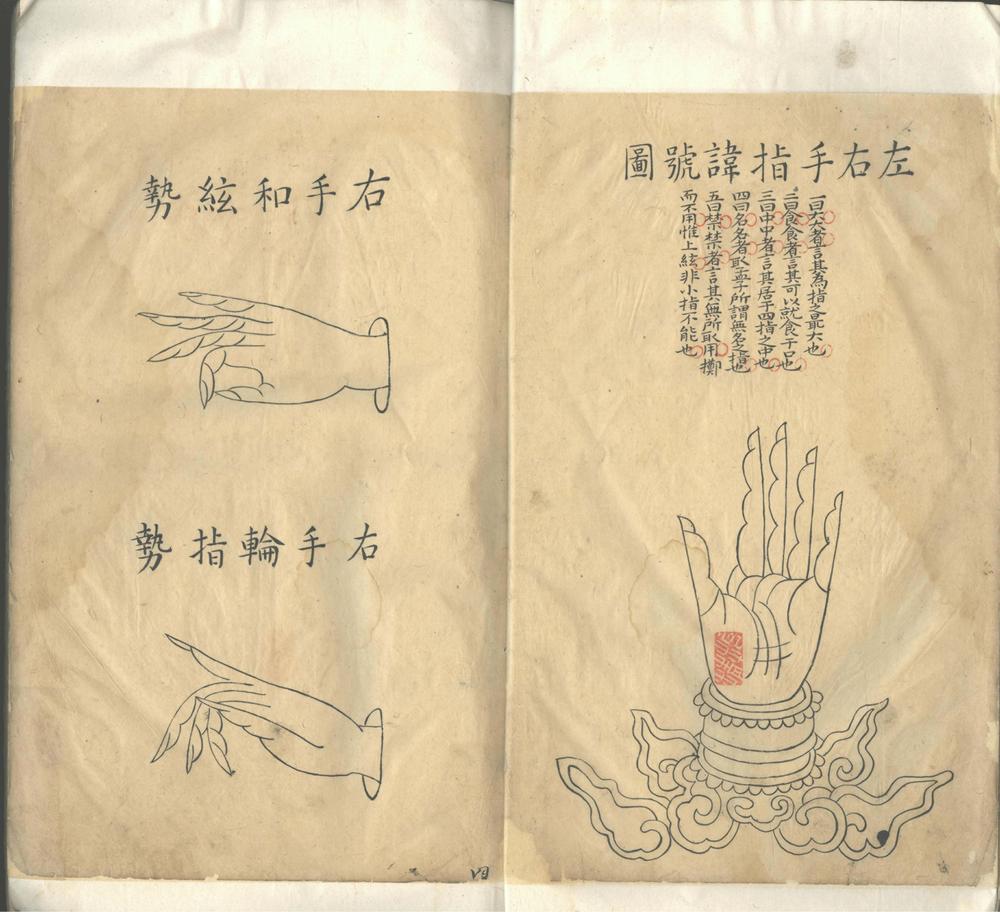 左右手指諱號圖
一曰大大者言其為指之最大也
二曰食食者言其可以就食于口也
三曰中中者言其居于四指之中也
四曰名名者取孟子所謂無名之指也
五曰禁禁者言其無所取用擲
而不用惟上絃非小指不能也
右手和絃勢
右手輪指勢